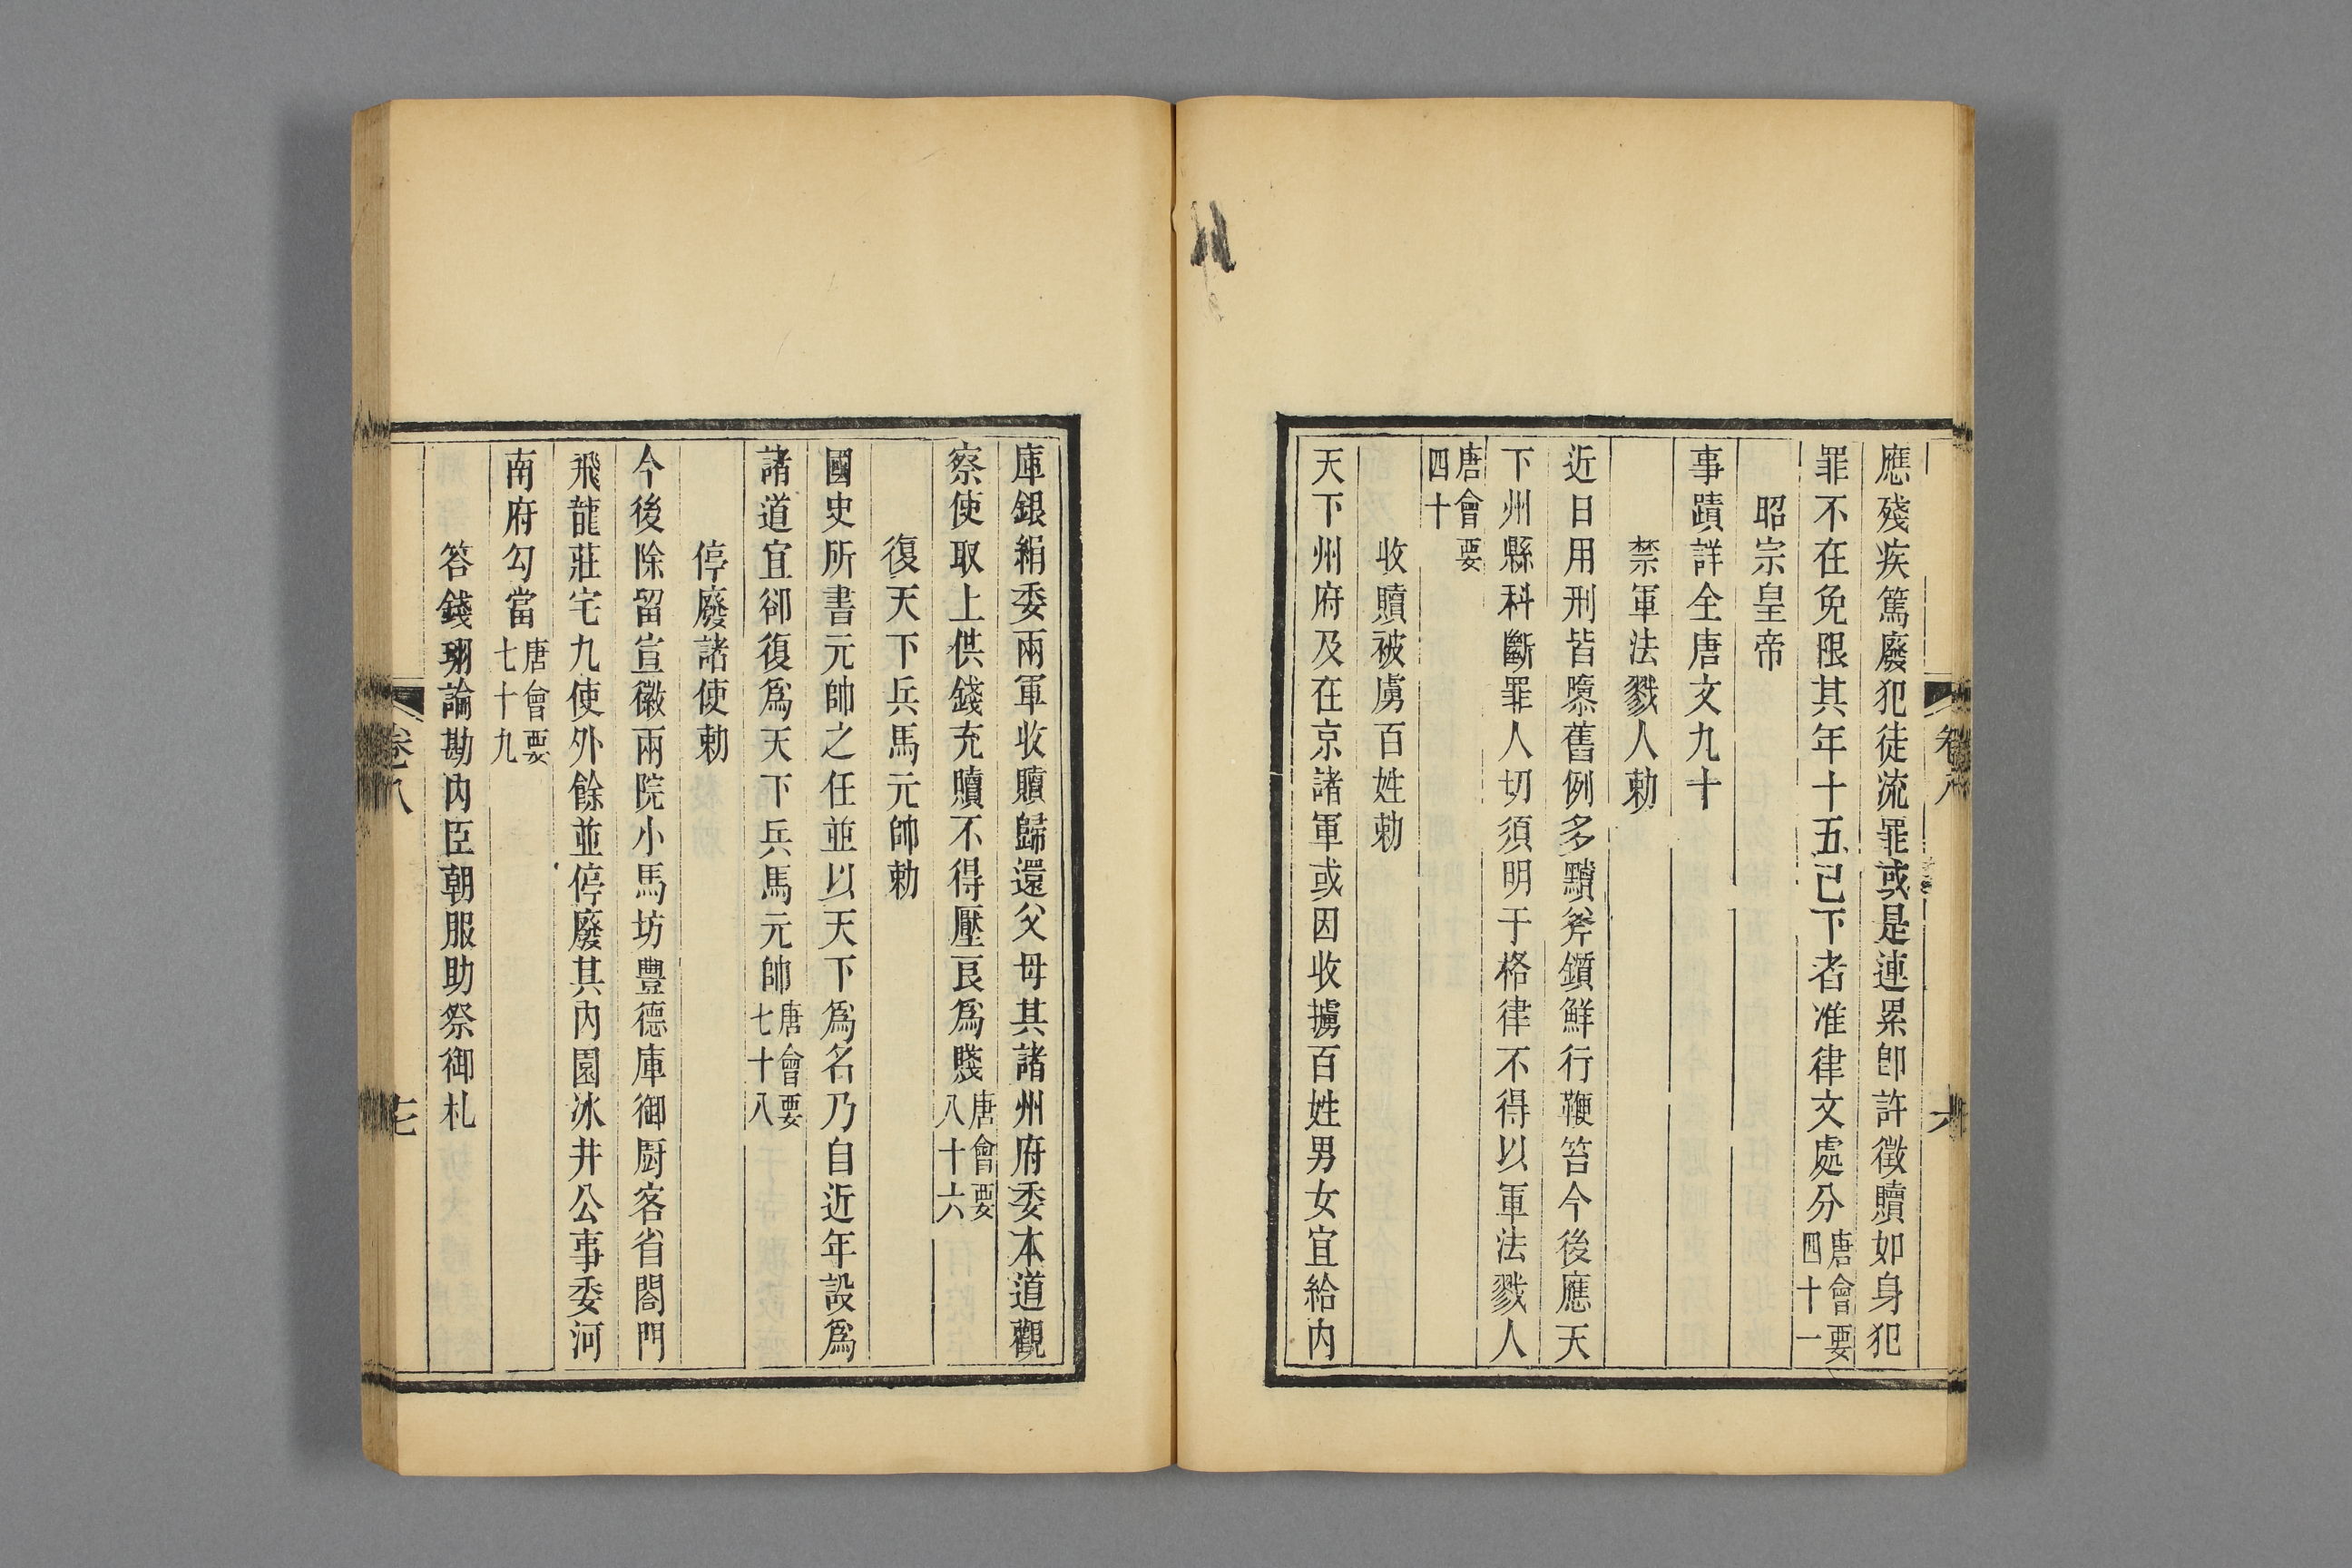 應殘疾篤廢犯徒流罪或是連累卽許徵贖如身犯
罪不在免限其年十五已下者准律文處分唐會要四十一
昭宗皇帝
事蹟詳全唐文九十
禁軍法戮人勅
近日用刑皆隳舊例多黷斧鑕鮮行鞭笞今後應天
下州縣科斷罪人切須明于格律不得以軍法戮人
唐會要四十
收贖被虜百姓勅
天下州府及在京諸軍或因收擄百姓男女宜給內
庫銀絹委兩軍收贖歸還父母其諸州府委本道觀
察使取上供錢充贖不得壓良爲賤唐會要八十六
復天下兵馬元帥勅
國史所書元帥之任並以天下爲名乃自近年設爲
諸道宜卻復爲天下兵馬元帥唐會要七十八
停廢諸使勅
今後除留宣徽兩院小馬坊豐德庫御厨客省閤門
飛龍莊宅九使外餘並停廢其內園冰井公事委河
南府勾當唐會要七十九
答錢珝論勘內臣朝服助祭御札
卷八
七